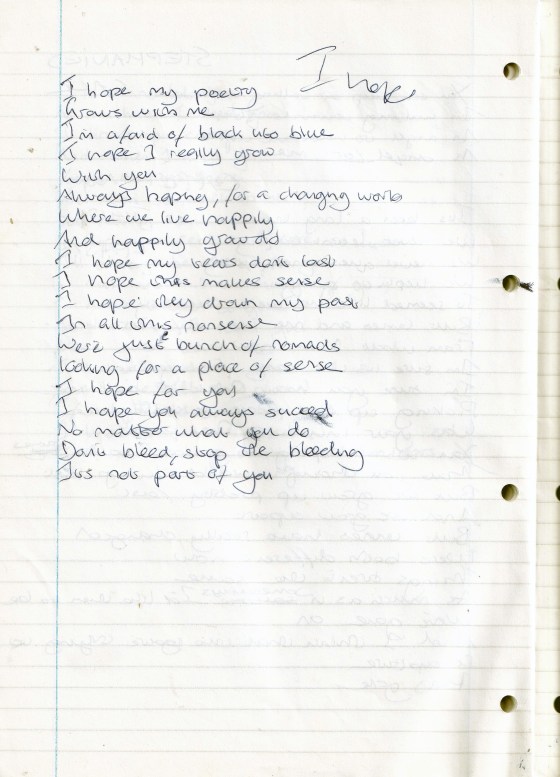 I hope
I hope my poetry
Grows with me
I'm afraid of black n blue
I hope I really grow
With you
Always hoping, for a changing world
Where we live happily
And happily grow old
I hope my tears dont last
I hope this makes sense
I hope they drown my past
In all this nonsense
We're just a bunch of nomads
looking for a place of sense
I hope for you
I hope you always succeed
No matter what you do
Dont bleed, stop the bleeding
Its not part of you